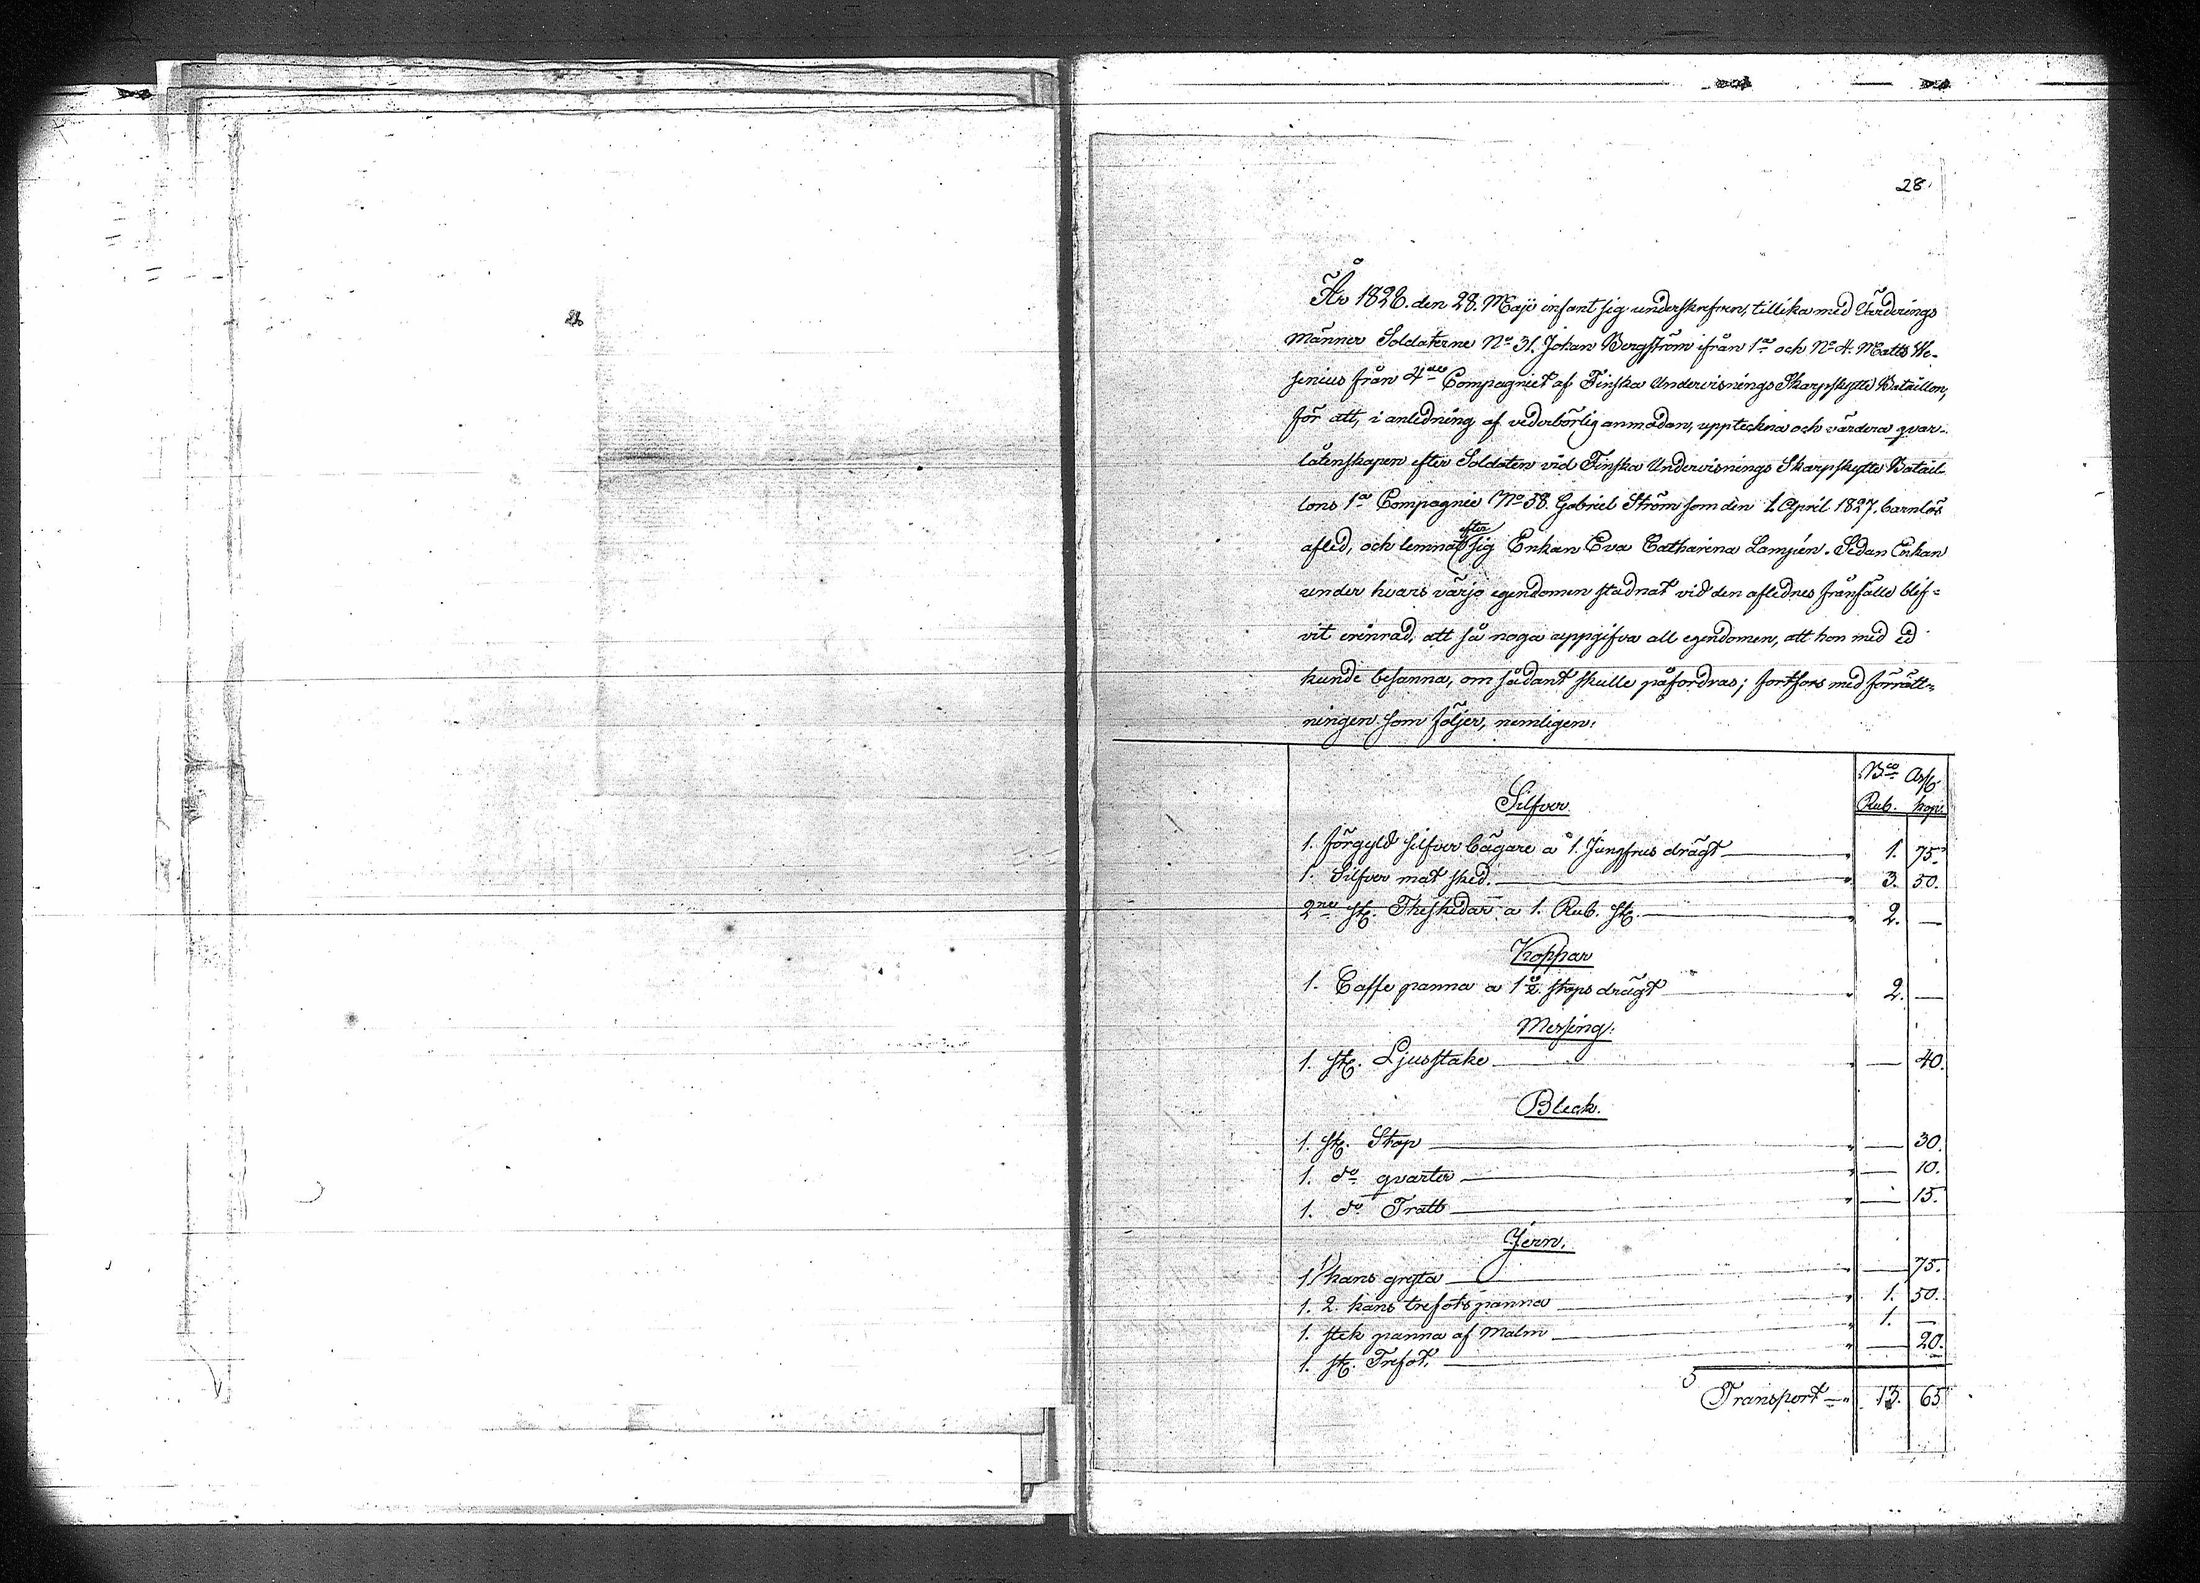 28.
År 1828. den 28. Maji infant sig underskrefven, tillika med Värderings
männer Soldaterne No 31. Johan Bergström ifrån 1a och No 4. Matts He-
senius från 4de Compagniet af Finska Undervisnings Skarpskytte Bataillon,
för att, i anledning af vederbörlig anmodan, uppteckna och värdera qvar-
låtenskapen efter Soldaten vid Finska Undervisnings Skarpskytte Batail-
lons 1a Compagnie No 58. Gabriel Ström som den 1. April 1827. barnlös
afled, och lemnat efter sig Enkan Eva Catharina Lampén. Sedan Enkan
under hvars värjo egendomen stadnat vid den aflednes frånfälle blif-
vit erinrad, att så noga uppgifva all egendomen, att hon med ed
kunde besanna, om sådant skulle påfordras; fortfors med förrätt-
ningen som följer, nemligen:
Bco Ass.
Silfver. Rub. kop.
1. förgyld silfver bägare a 1. Jungfrus drägt 1. 75.
1. Silfver mat sked. 3. 50.
2ne st. Theskedar a 1. Rub. st. 2. —
Koppar
1. Caffe panna a 1 1/2 stops drägt 2. —
Messing.
1. st. Ljusstake — 40.
Bleck.
1. st. Stop — 30.
1. do qvarter — 10.
1. do Tratt — 15.
Jern.
1. kans gryta — 75.
1. 2. kans trefotspanna 1. 50.
1. stek panna af Malm 1. —
1. st. Trefot. — 20.
Transport 13. 65